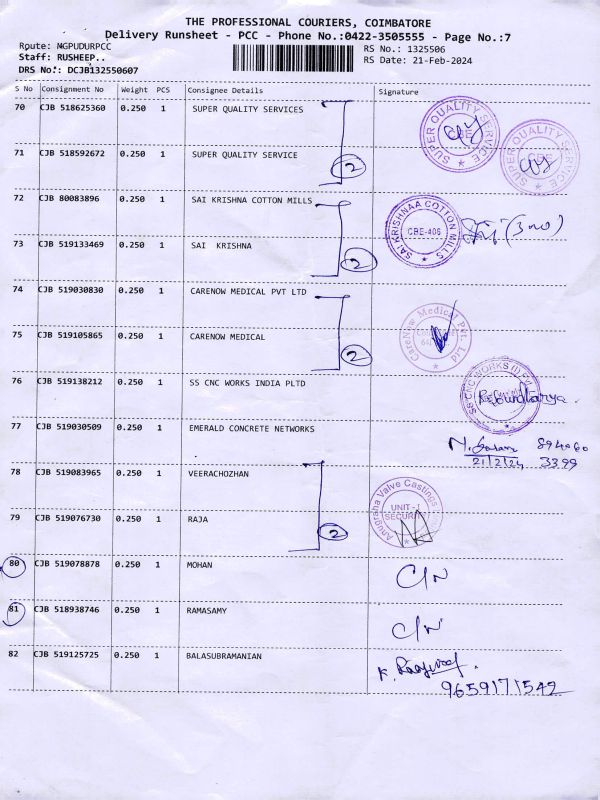 THE PROFESSIONAL COURIERS, COIMBATORE
Delivery Runsheet - PCC - Phone No.:0422-3505555 - Page No.:7
Route: MGPUDURPCC
RS No.: 1325506
Staff: RUSHEEP..
RS Date: 21-Feb-2024
DRS No.: DCJB132550607
S No Consignment No Weight PCS Consignee Details Signature
70 CJB 518625360 0.250 1 SUPER QUALITY SERVICES
SUPER QUALITY SERVICE CBE
SUPER QUALITY SERVICE
71 CJB 518592672 0.250 1 SUPER QUALITY SERVICE
2
72 CJB 80083896 0.250 1 SAI KRISHNA COTTON MILLS
SAI KRISHNAA COTTON MILLS CBE-406
73 CJB 519133469 0.250 1 SAI KRISHNA
2
74 CJB 519030830 0.250 1 CARENOW MEDICAL PVT LTD
CareNow Medical Pvt. Ltd
75 CJB 519105865 0.250 1 CARENOW MEDICAL
2
76 CJB 519138212 0.250 1 SS CNC WORKS INDIA PLTD
SS CNC WORKS
77 CJB 519030509 0.250 1 EMERALD CONCRETE NETWORKS
21/2/24 3399
78 CJB 519083965 0.250 1 VEERACHOZHAN
Anugraha Valve Castings
UNIT-I
SECURITY
79 CJB 519076730 0.250 1 RAJA
2
80 CJB 519078878 0.250 1 MOHAN
C/N
81 CJB 518938746 0.250 1 RAMASAMY
C/N
82 CJB 519125725 0.250 1 BALASUBRAMANIAN
9659171542